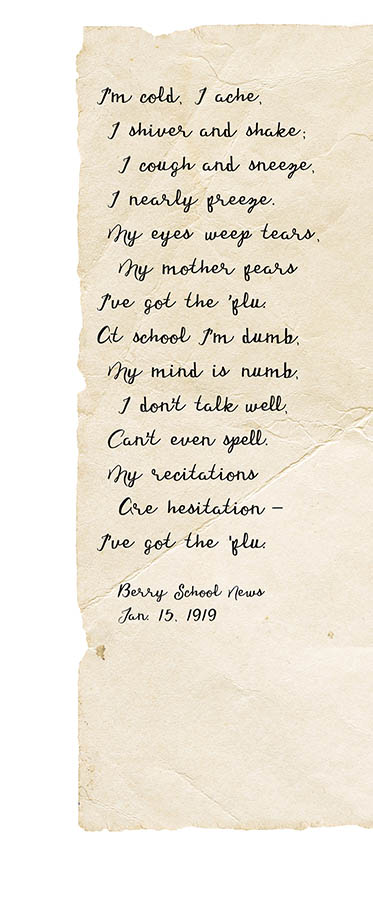 I'm cold, I ache,
I shiver and shake;
I cough and sneeze,
I nearly freeze.
My eyes weep tears,
My mother fears
I've got the 'flu.
At school I'm dumb,
My mind is numb,
I don't talk well,
Can't even spell.
My recitations
Are hesitation –
I've got the 'flu.
Berry School News
Jan. 15, 1919